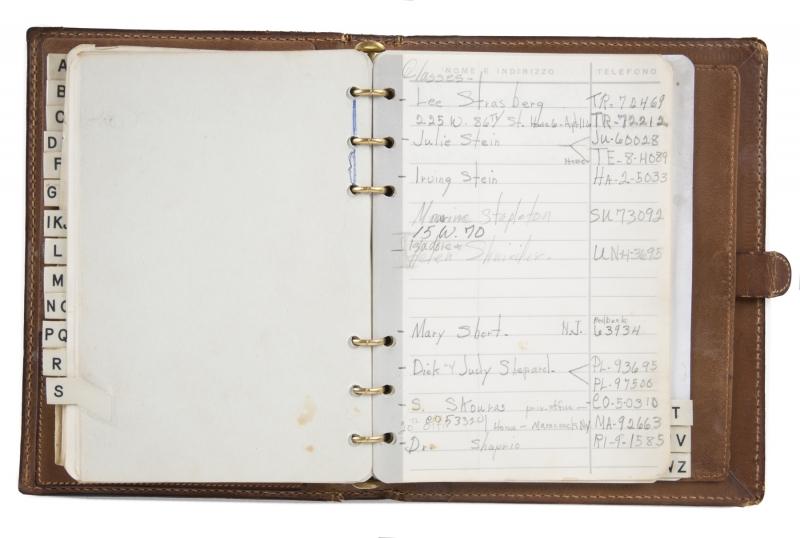 A
B
C
D
F
G
IKJ
L
M
NO
PQ
R
S
NOME E INDIRIZZO TELEFONO
Classes-
Lee Strasberg TR-72469
225 W. 86th St. TR-72212
Julie Stein JU-60028
Home TE-8-4089
Irving Stein HA-2-5033
Maurine Stapleton SU 73092
15 W. 70
Helen UN-4-3695
Mary Short. N.J. 63934
Dick + Judy Shepard- PL-93695
PL-97500
S. Skouras priv. office - CO-5-0310
Home - NY MA-92663
Dr. Shaprio RI-9-1585
T
V
WZ